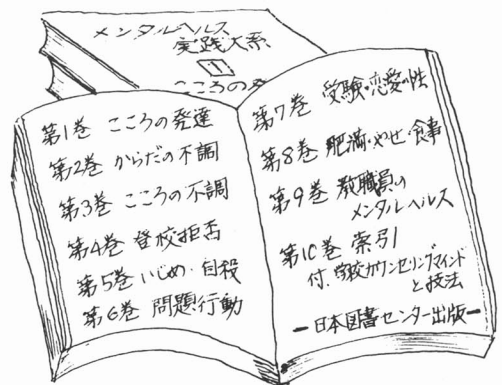 メンタルヘルス
実践大系
1
こころの発
第1巻 こころの発達
第2巻 からだの不調
第3巻 こころの不調
第4巻 登校拒否
第5巻 いじめ・自殺
第6巻 問題行動
第7巻 受験・恋愛・性
第8巻 肥満・やせ・食事
第9巻 教職員の
メンタルヘルス
第10巻 索引
付.学校カウンセリングマインド
と技法
ー日本図書センター出版ー